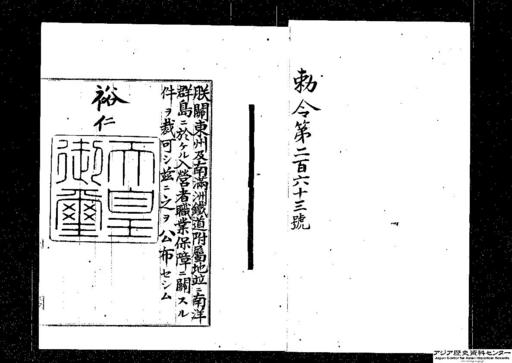 勅令第二百六十三號
朕關東州及南滿洲鐵道附屬地竝ニ南洋
群島ニ於ケル入營者職業保障ニ關スル
件ヲ裁可シ玆ニ之ヲ公布セシム
裕仁
天皇
御璽
アジア歴史資料センター
Japan Center for Asian Historical Records